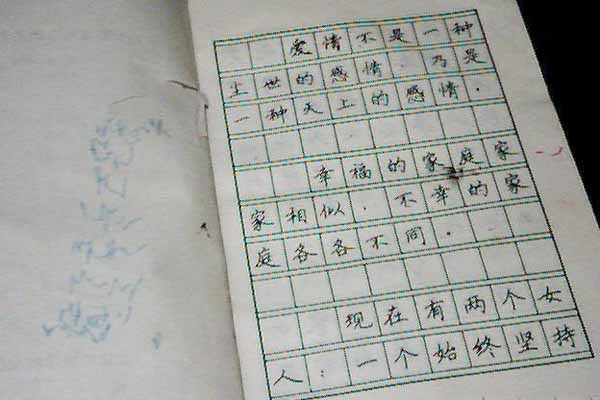 爱情不是一种
尘世的感情.乃是
一种天上的感情.
幸福的家庭家
家相似.不幸的家
庭各各不同.
现在有两个女
人:一个始终坚持